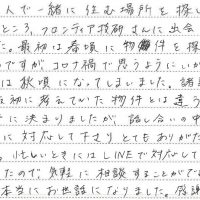 人で一緒に住む場所を探し
ところ、フロンティア技研さんに出会
た。最初は春頃に物件を探
ですが、コロナ禍で思うようにいか
は秋頃になってしまいました。諸
初に考えていた物件とは違う
に決まりましたが、話し合いの中
に対応して下さりとてもありがた
。忙しいときにはLINEで対応して
たので、気軽に相談することがで
本当にお世話になりました。感謝